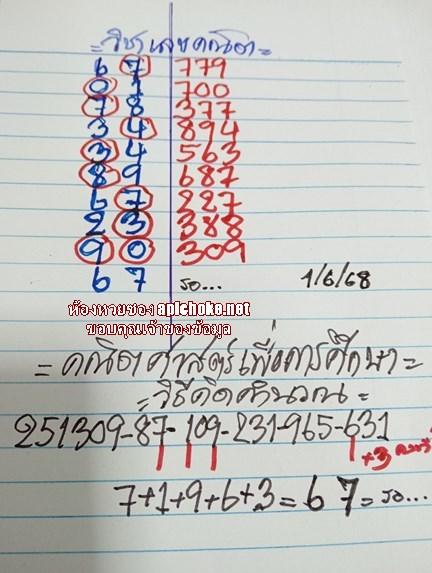 = วิชาเลขคณิต =
6 7 779
0 1 700
7 8 377
3 4 894
3 4 563
8 9 687
6 7 227
2 3 388
9 0 309
6 7 รอ... 1/6/68
ห้องหวยซอง apichoke.net
ขอบคุณเจ้าของข้อมูล
= คณิตศาสตร์เพื่อการศึกษา =
= วิธีคิดคำนวณ =
251309-87-109-231-965-631
+3
7+1+9+6+3= 6 7 = รอ...